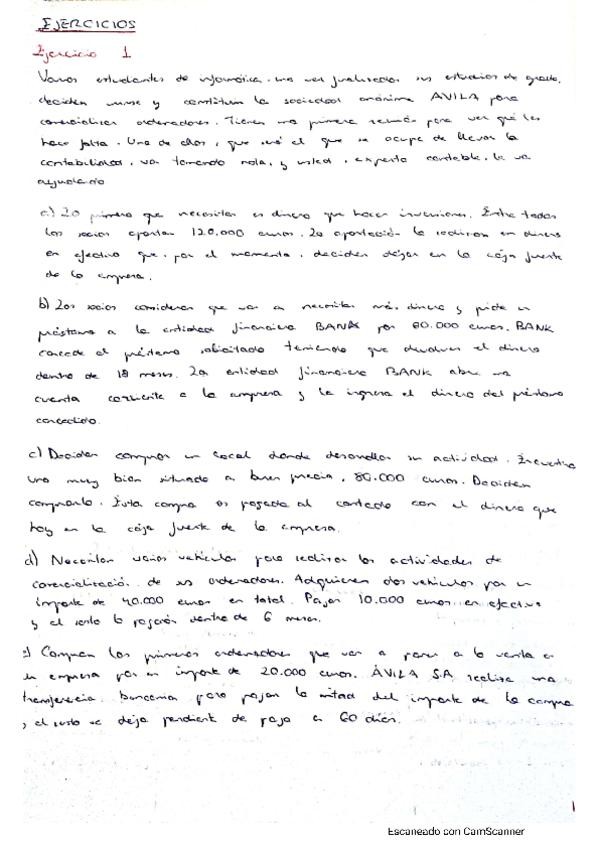 EJERCICIOS
Ejercicio 1
Varios estudiantes de informática, una vez finalizados sus estudios de grado,
deciden unirse y constituir la sociedad anónima AVILA para
comercializar ordenadores. Tienen una primera reunión para ver qué les
hace falta. Uno de ellos, que será el que se ocupe de llevar la
contabilidad, va tomando nota, y usted, experto contable, le va
ayudando
a) Lo primero que necesitan es dinero que hacer inversiones. Entre todos
los socios aportan 120.000 euros. La aportación la realizan en dinero
en efectivo que, por el momento, deciden dejar en la caja fuerte
de la empresa.
b) Los socios consideran que van a necesitar más dinero y pide un
préstamo a la entidad financiera BANK por 60.000 euros. BANK
concede el préstamo solicitado teniendo que devolver el dinero
dentro de 18 meses. La entidad financiera BANK abre una
cuenta corriente a la empresa y la ingresa el dinero del préstamo
concedido.
c) Deciden comprar un local donde desarrollar su actividad. Encuentra
uno muy bien situado a buen precio, 80.000 euros. Deciden
comprarlo. Esta compra es pagada al contado con el dinero que
hay en la caja fuerte de la empresa.
d) Necesitan varios vehículos para realizar las actividades de
comercialización de sus ordenadores. Adquieren dos vehículos por un
importe de 40.000 euros en total. Pagan 10.000 euros en efectivo
y el resto lo pagarán dentro de 6 meses.
e) Compran los primeros ordenadores que van a poner a la venta en
su empresa por un importe de 20.000 euros. ÁVILA S.A realiza una
transferencia bancaria para pagar la mitad del importe de la compra
y el resto se deja pendiente de pago a 60 días.
1
Escaneado con CamScanner